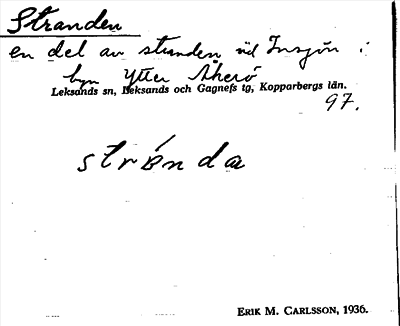 Stranden
en del av stranden vid Insjön i
byn Ytter Åkerö
Leksands sn, Leksands och Gagnefs tg, Kopparbergs län.
97.
strønda
ERIK M. CARLSSON, 1936.